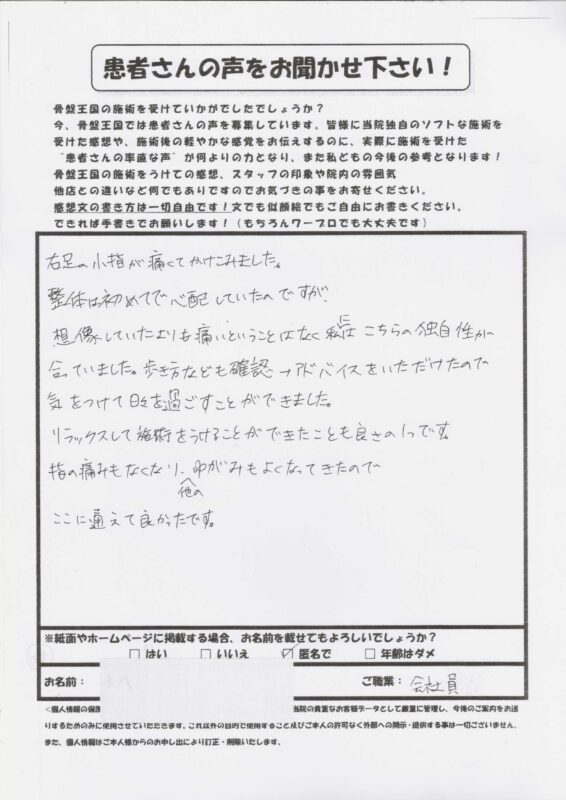 患者さんの声をお聞かせ下さい！
骨盤王国の施術を受けていかがでしたでしょうか？
今、骨盤王国では患者さんの声を募集しています。皆様に当院独自のソフトな施術を
受けた感想や、施術後の軽やかな感覚をお伝えするのに、実際に施術を受けた
“患者さんの率直な声”が何よりの力となり、また私どもの今後の参考となります！
骨盤王国の施術をうけての感想、スタッフの印象や院内の雰囲気
他店との違いなど何でもありですのでお気づきの事をお寄せください。
感想文の書き方は一切自由です！文でも似顔絵でもご自由にお書きください。
できれば手書きでお願いします！（もちろんワープロでも大丈夫です）
右足の小指が痛くてかけこみました。
整体は初めてで心配していたのですが、
想像していたよりも痛いということはなく私には こちらの独自性が
合っていました。歩き方なども確認→アドバイスをいただけたので
気をつけて日々を過ごすことができました。
リラックスして施術をうけることができたことも良さの1つです。
指の痛みもなくなり、他のゆがみもよくなってきたので
ここに通えて良かったです。
※紙面やホームページに掲載する場合、お名前を載せてもよろしいでしょうか？
□ はい □ いいえ ☑ 匿名で □ 年齢はダメ
お名前： ご職業： 会社員
＜個人情報の保護 当院の貴重なお客様データとして厳重に管理し、今後のご案内をお送
りするためのみに使用させていただきます。これ以外の目的で使用すること及びご本人の許可なく外部への開示・提供する事は一切ございません。
また、個人情報はご本人様からのお申し出により訂正・削除いたします。